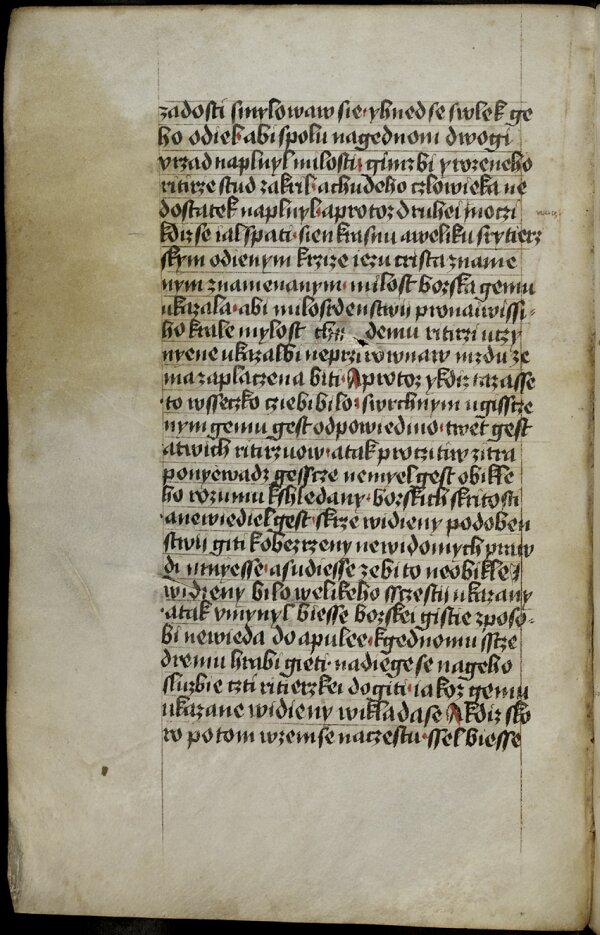 zadosti smylowaw sie · yhned se swlek ge
ho odiek · abi spolu nagednom dwogi
vrzad naplnyl milosti · gimzbi yrozeneho
ritirze stud zakril · achudeho czlowieka ne
dostatek naplnyl · aprotoz druhei moczi
kdiz se ial spati · sien krasnu aweliku srytierz
skym odienym krzize iezu crista zname
nym znamenanym · milost borska gemu
ukazala · abi milosrdenstwy pronaiwissi-
ho krale mylost demu ritirzi uczy
nyene ukazalbi neprzirownaw mzdu ze
ma zaplaczena biti · Aprotoz ykdiz tazasse
· to wsseczko cziebi bilo · swrchnym ugisscze
nym gemu gest odpowiedino · twet gest
atwich ritirzuow · atak proczitiw zitra
ponyewadz gesscze nemyel gest obikle
ho rozumu kshledany · borskich skritosti
· anewiediel gest · skrze widieny podoben
stwy giti kobezrzeny newidomych praw
di umyesse · asudiesse zebi to neobikle
widzeny bilo welikeho ssczestij ukazany
· atak vmynyl biesse borskei gistie zposo-
bi newieda do apulee · kgednomu sscze
dremu hrabi gieti · nadiege se nageho
sluzbie czti ritierzkei dogiti · iakoz gemu
ukazane widieny wiklada se Akdiz sko
ro potom wzem se naczestu · ssel biesse